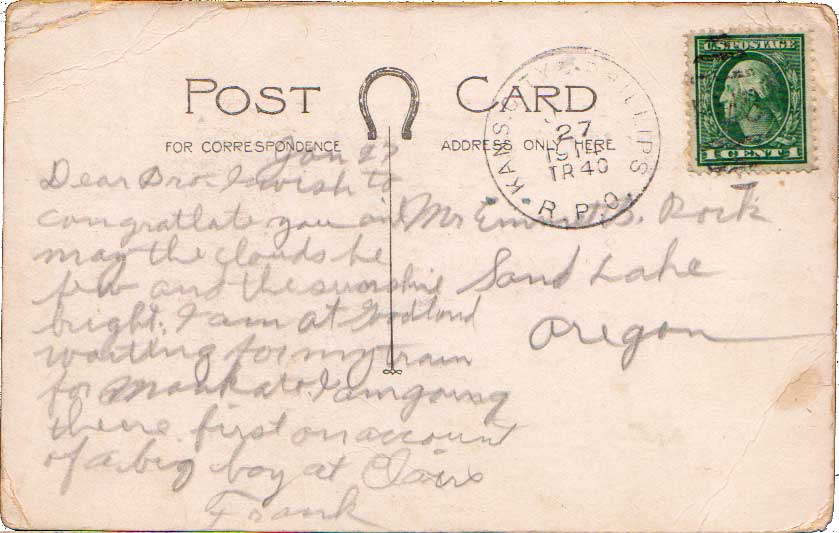 POST CARD
FOR CORRESPONDENCE
ADDRESS ONLY HERE
U.S. POSTAGE
1 CENT 1
KANS. CITY & PHILLIPS
27
TR 40
R.P.O.
Jan 27
Dear Bro. I wish to
congratlate you and
may the clouds be
few and the sunshine
bright. I am at Goodland
waiting for my train
for Mankato. I am going
there first on account
of a big boy at
Frank
Mr S. Rock
Sand Lake
Oregon